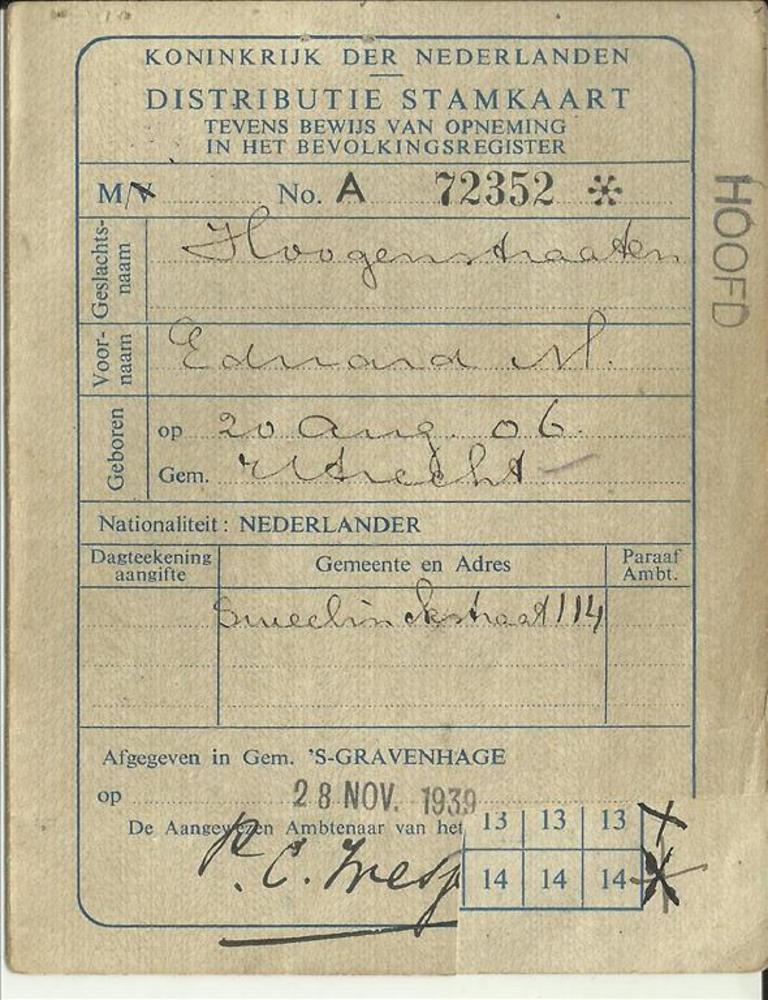 KONINKRIJK DER NEDERLANDEN
DISTRIBUTIE STAMKAART
TEVENS BEWIJS VAN OPNEMING
IN HET BEVOLKINGSREGISTER
M/V No. A 72352 *
HOOFD
Geslachts-
naam
Hoogenstraaten
Voor-
naam
Eduard M.
Geboren
op 20 Aug. 06.
Gem. Utrecht
Nationaliteit: NEDERLANDER
Dagteekening
aangifte
Gemeente en Adres
Paraaf
Ambt.
Sweelinckstraat 114
Afgegeven in Gem. 'S-GRAVENHAGE
op 28 NOV. 1939
De Aangewezen Ambtenaar van het
P. C.
13 13 13
14 14 14